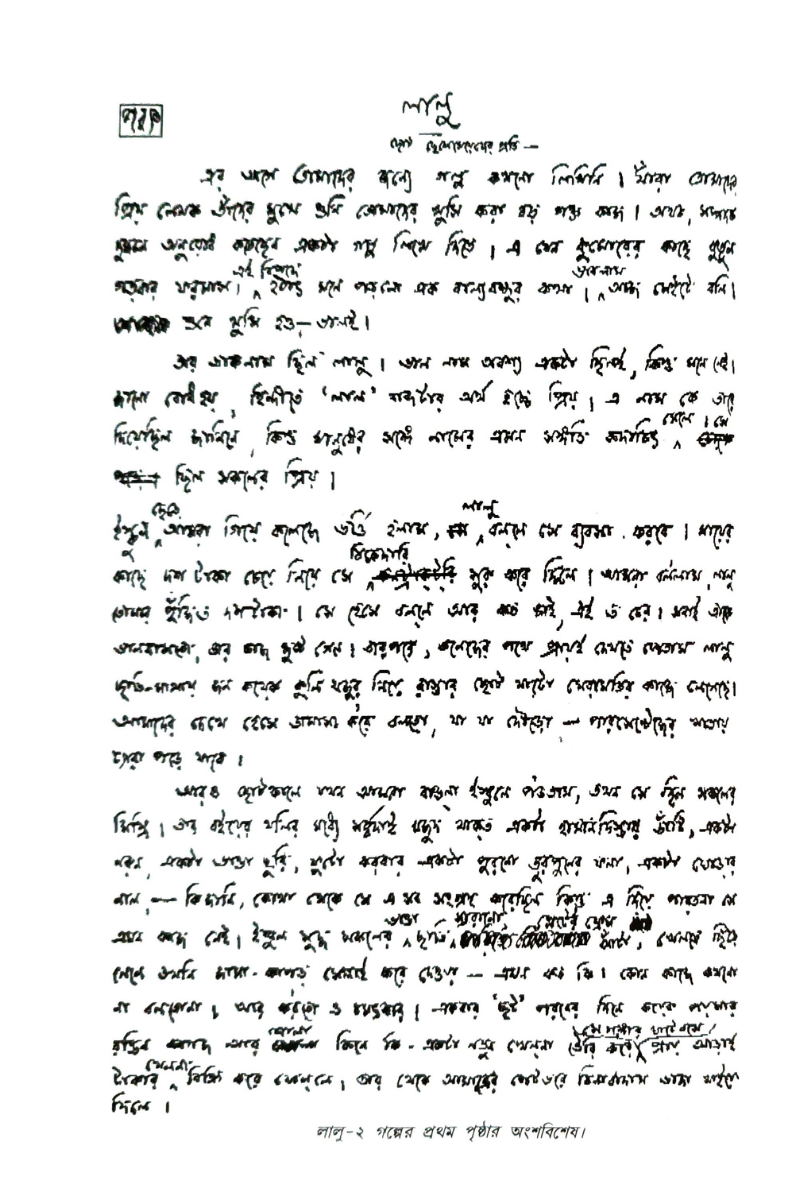 শরৎ
লালু
ছোট ছেলেমেয়েদের প্রতি —
এর আগে তোমাদের জন্যে গল্প কখনো লিখিনি। যাঁরা তোমাদের
প্রিয় লেখক তাঁদের মুখে শুনি তোমাদের খুসি করা বড় শক্ত কাজ। অথচ, সম্পাদক
অনুরোধ করেছেন একটা গল্প লিখে দিতে। এ যেন কুমোরের কাছে কুড়ুল
গড়বার ফরমাস। এই বিপদে হঠাৎ মনে পড়লো এক বাল্যবন্ধুর কথা। ভাবলাম আজ সেইটে বলি।
শুনে খুসি হও,—ভালই।
তার ডাকনাম ছিল লালু। ভাল নাম অবশ্য একটা ছিলই, কিন্তু মনে নেই।
জানো বোধ হয়, হিন্দীতে 'লাল' শব্দটার অর্থ হচ্ছে প্রিয়। এ নাম কে তারে
দিয়েছিল জানিনে, কিন্তু মানুষের সঙ্গে নামের এমন সঙ্গতি কদাচিৎ মেলে। সে
ছিল সকলের প্রিয়।
ইস্কুল ছেড়ে আমরা গিয়ে কলেজে ভর্ত্তি হলাম, লালু বললে সে ব্যবসা করবে। মায়ের
কাছে দশ টাকা চেয়ে নিয়ে সে ঠিকেদারি সুরু করে দিলে। আমরা বললাম, লালু
তোমার পুঁজি ত দশ টাকা। সে হেসে বললে আর কত চাই, এই ত ঢের। সবাই তাকে
ভালবাসতো, তার কাজ জুটে গেল। তারপরে, কলেজের পথে প্রায়ই দেখতে পেতাম লালু
ছাতি-মাথায় জন কয়েক কুলি মজুর নিয়ে রাস্তার ছোট খাটো মেরামতির কাজে লেগেছে।
আমাদের দেখে হেসে তামাসা করে বলতো, যা যা দৌড়ো — পারসেন্টেজের খাতায়
ঢ্যারা পড়ে যাবে।
আরও ছোটকালে যখন আমরা বাঙলা ইস্কুলে পড়তাম, তখন সে ছিল সকলের
মিস্ত্রি। তার বইয়ের থলির মধ্যে সর্ব্বদাই মজুদ থাকত একটা হামানদিস্তার ডাঁটি, একটা
নরুন, একটা ভাঙা ছুরি, ফুটো করবার একটা পুরনো তুরপুনের ফলা, একটা ঘোড়ার
নাল, — কি জানি, কোথা থেকে সে এ সব সংগ্রহ করেছিল কিন্তু এ দিয়ে পারতনা সে
এমন কাজ নেই। ইস্কুল সুদ্ধ সকলের ভাঙা ছাতি সারানো, শ্লেটের ফ্রেম আঁটা, খেলতে ছিঁড়ে
গেলে তখনি জামা-কাপড় সেলাই করে দেওয়া — এমন কত কি। কোন কাজে কখনো
না বলতোনা। আর করতো ও চমৎকার। একবার 'ছট' পরবের দিনে কয়েক পয়সার
রঙিন কাগজ আর শোলা কিনে কি-একটা নতুন খেলনা তৈরি করে সে গঙ্গার ঘাটে বসে প্রায় আড়াই
টাকার খেলনা বিক্রি করে ফেললে। তার থেকে আমাদের পেটভরে চিনেবাদাম ভাজা খাইয়ে
দিলে।
লালু-২ গল্পের প্রথম পৃষ্ঠার অংশবিশেষ।